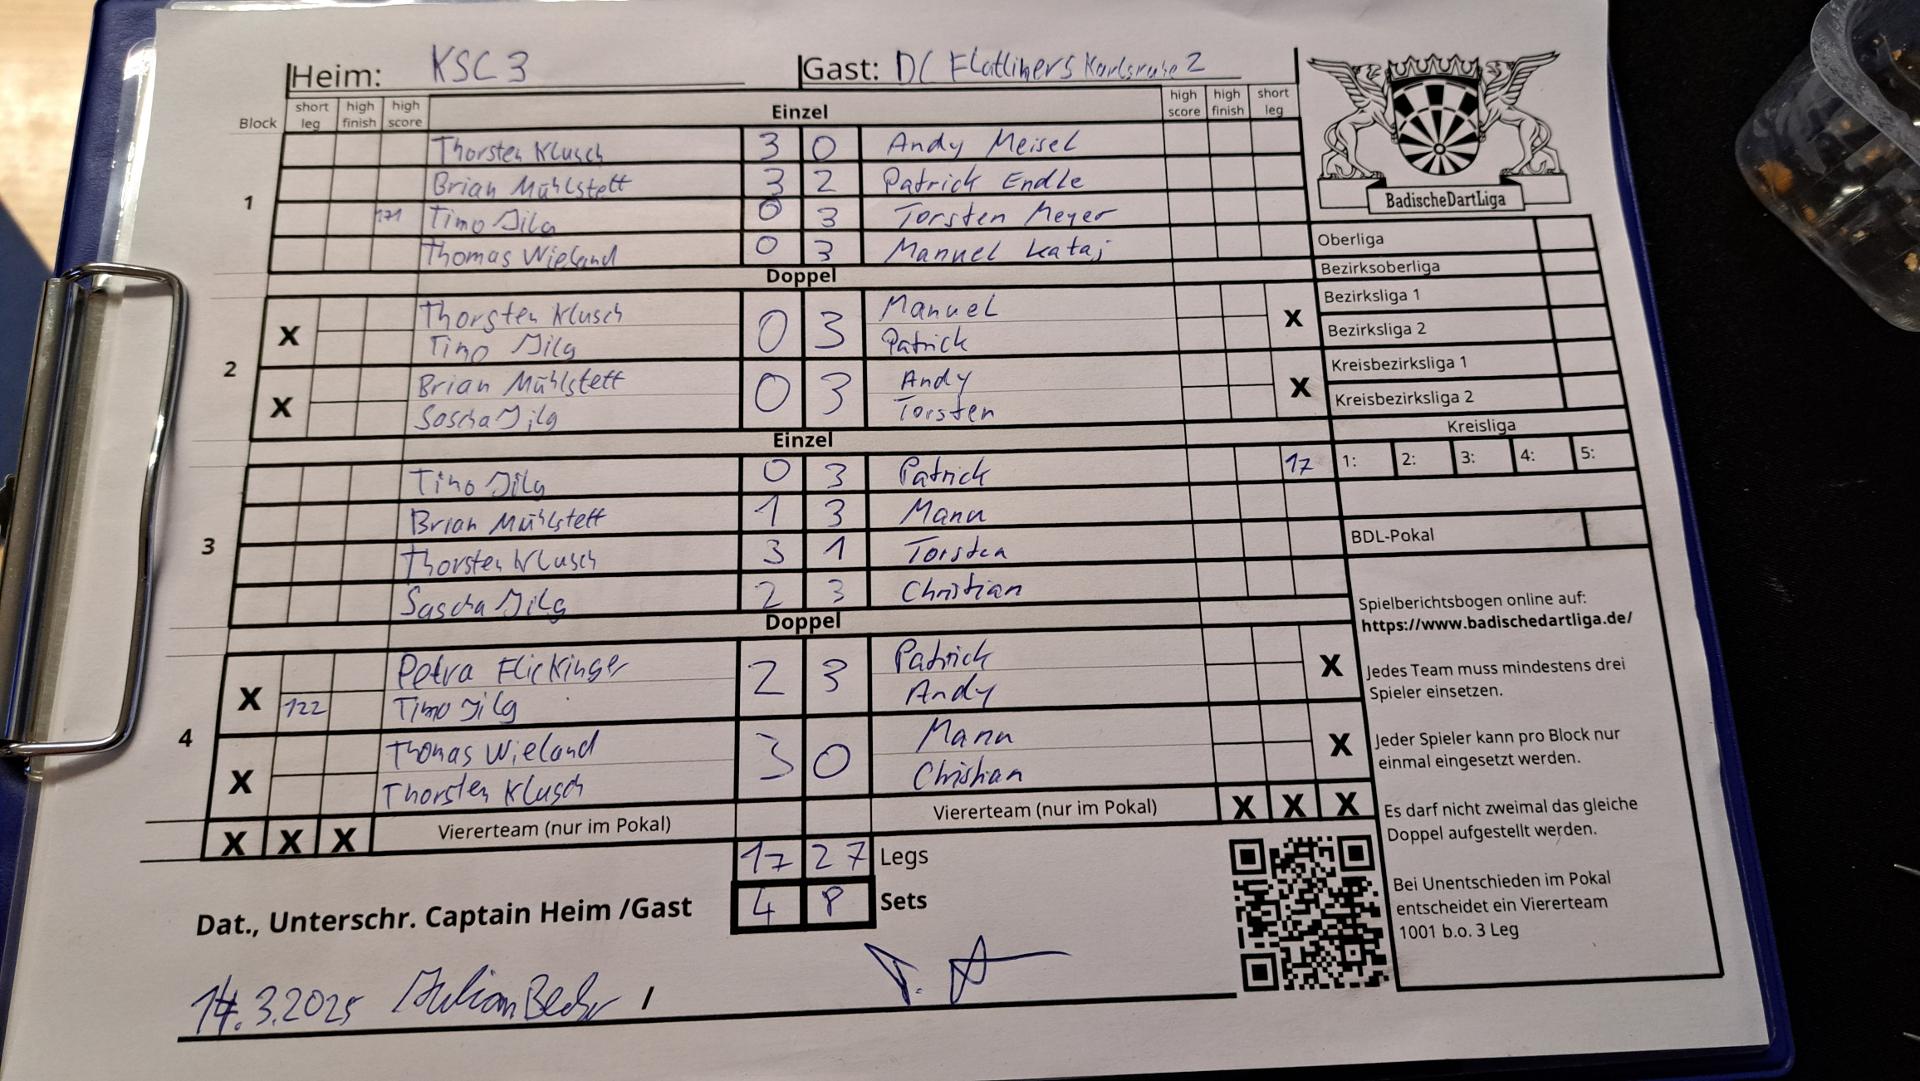 Heim: KSC 3 Gast: DC Flatliners Karlsruhe 2
Block short leg high finish high score Einzel high score high finish short leg
1
Thorsten Klusch 3 0 Andy Meisel
Brian Mühlstett 3 2 Patrick Endle
171 Timo Jilg 0 3 Torsten Meyer
Thomas Wieland 0 3 Manuel Kataj
Doppel
2
X Thorsten Klusch 0 3 Manuel X
Timo Jilg Patrick
X Brian Mühlstett 0 3 Andy X
Sascha Jilg Torsten
Einzel
3
Timo Jilg 0 3 Patrick 17
Brian Mühlstett 1 3 Manu
Thorsten Klusch 3 1 Torsten
Sascha Jilg 2 3 Christian
Doppel
4
X Petra Flickinger 2 3 Patrick X
122 Timo Jilg Andy
X Thomas Wieland 3 0 Manu X
Thorsten Klusch Christian
X X X Viererteam (nur im Pokal) Viererteam (nur im Pokal) X X X
17 27 Legs
4 8 Sets
Dat., Unterschr. Captain Heim /Gast
14.3.2025 /
BadischeDartLiga
Oberliga
Bezirksoberliga
Bezirksliga 1
Bezirksliga 2
Kreisbezirksliga 1
Kreisbezirksliga 2
Kreisliga
1: 2: 3: 4: 5:
BDL-Pokal
Spielberichtsbogen online auf:
https://www.badischedartliga.de/
Jedes Team muss mindestens drei
Spieler einsetzen.
Jeder Spieler kann pro Block nur
einmal eingesetzt werden.
Es darf nicht zweimal das gleiche
Doppel aufgestellt werden.
Bei Unentschieden im Pokal
entscheidet ein Viererteam
1001 b.o. 3 Leg